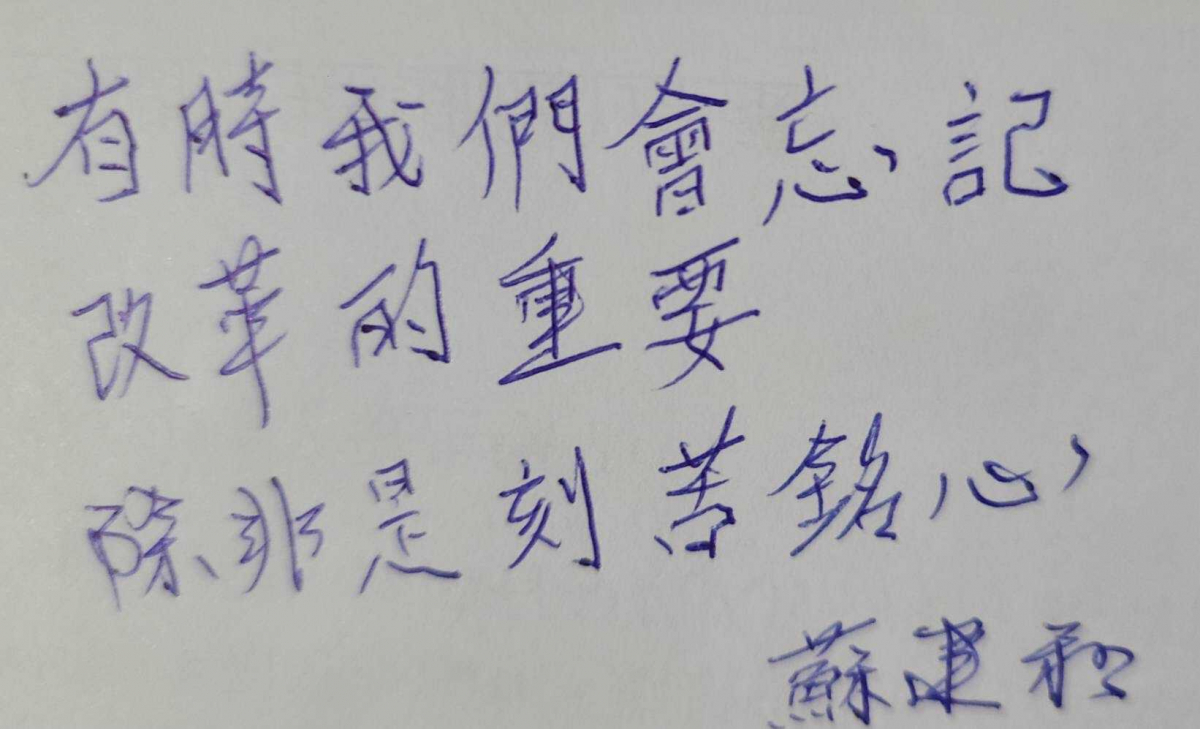 有時我們會忘記
改革的重要
除非是刻苦銘心
蘇建和